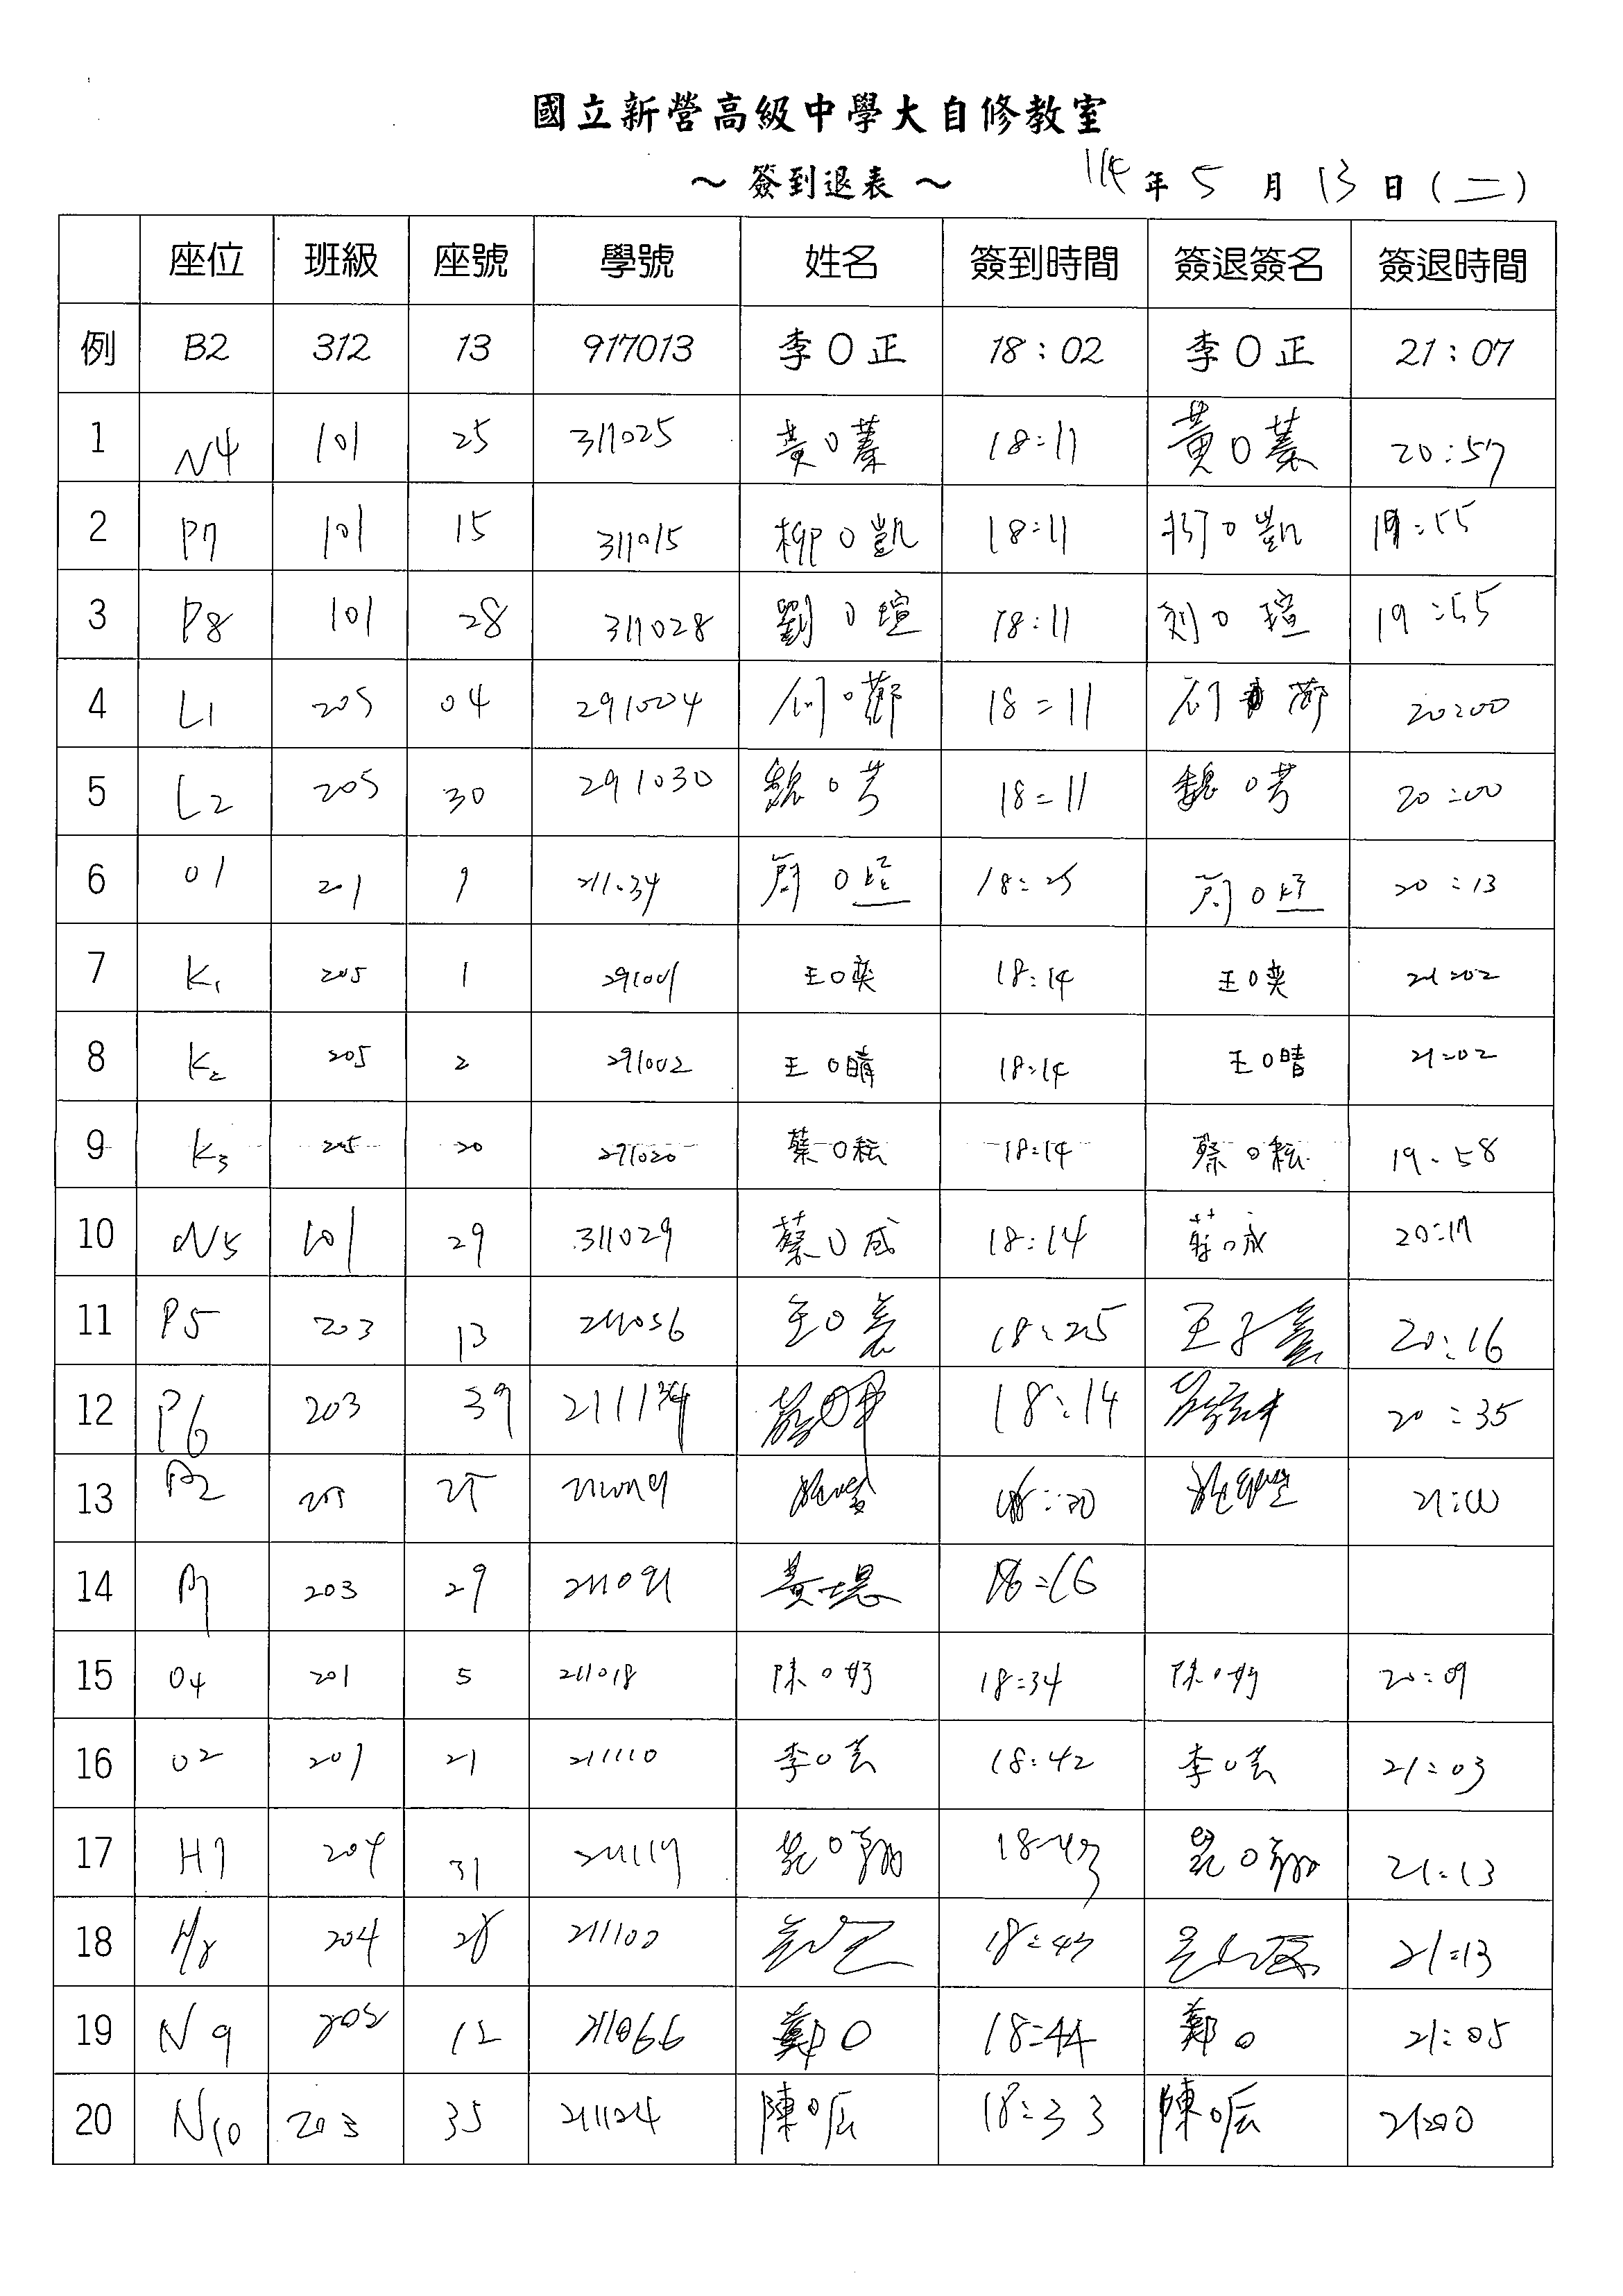 國立新營高級中學大自修教室
～ 簽到退表 ～ 114 年 5 月 13 日 (二)
座位 班級 座號 學號 姓名 簽到時間 簽退簽名 簽退時間
例 B2 312 13 917013 李O正 18:02 李O正 21:07
1 N4 101 25 311025 黃O蓁 18:11 黃O蓁 20:57
2 P7 101 15 311015 柳O凱 18:11 O凱 19:55
3 P8 101 28 311028 劉O瑄 18:11 刘O瑄 19:55
4 L1 205 04 291004 何O 18:11 何 20:00
5 L2 205 30 291030 魏O芳 18:11 魏O芳 20:00
6 O1 201 9 211034 O 18:25 O 20:13
7 K1 205 1 291001 王O奕 18:14 王O奕 21:02
8 K2 205 2 291002 王O晴 18:14 王O晴 21:02
9 K3 205 20 291020 蔡O耘 18:14 蔡O耘 19:58
10 N5 101 29 311029 蔡O成 18:14 蔡O成 20:17
11 P5 203 13 211056 王O 18:25 王 20:16
12 P6 203 39 18:14 20:35
13 P2 25 21:00
14 203 29 211091 黃 18:16
15 O4 201 5 211018 陳O妤 18:34 陳O妤 20:09
16 O2 201 21 211110 李O芸 18:42 李O芸 21:03
17 H7 204 31 211119 O翰 18:43 O翰 21:13
18 H8 204 28 211100 18:43 21:13
19 N9 205 12 211066 鄭O 18:44 鄭O 21:05
20 N10 203 35 211124 陳O宏 18:33 陳O宏 21:00